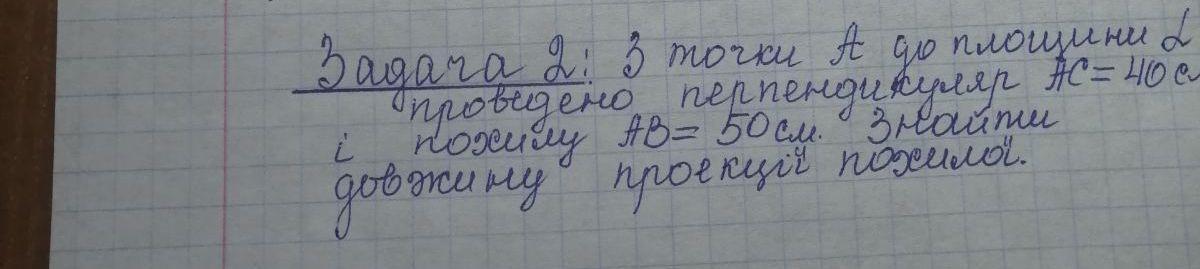 Задача 2: З точки А до площини α
проведено перпендикуляр АС = 40 см
і похилу АВ = 50 см. Знайти
довжину проекції похилої.